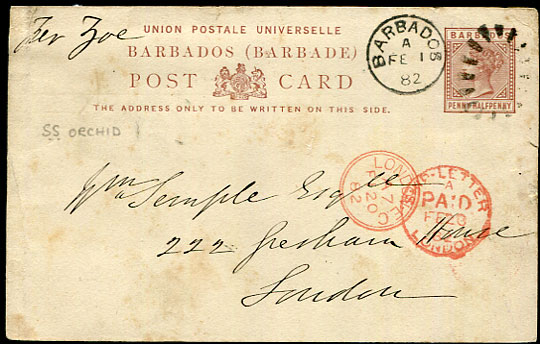 Per Zoe
UNION POSTALE UNIVERSELLE
BARBADOS (BARBADE)
POST CARD
THE ADDRESS ONLY TO BE WRITTEN ON THIS SIDE.
BARBADOS
A
FE 1
82
BARBADOS
PENNY HALFPENNY
SS ORCHID
Wm Semple Esq
222 Gresham House
London
LONDON E.C
A 7
FE 20
82
LETTER
A
PAID
FE 20
LONDON